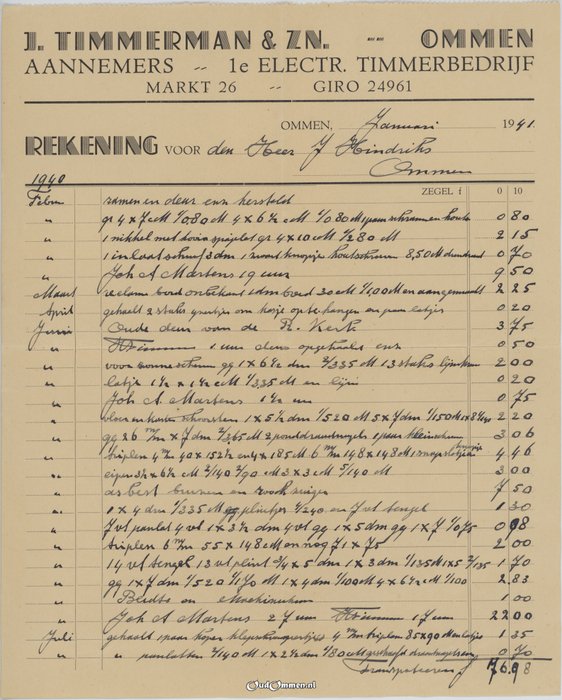 J. TIMMERMAN & ZN. -- OMMEN
AANNEMERS -- 1e ELECTR. TIMMERBEDRIJF
MARKT 26 -- GIRO 24961
OMMEN, Januari 1941.
REKENING VOOR den Heer J Hindriks
Ommen
1940
ZEGEL f 0 10
Febru ramen en deur enz hersteld
" gr 4 x 7 cM 1/0,80 4 x 6½ cM 1/0,80 M 1 paar schroeven hout 0 80
" 1 nikkel met gr 4 x 10 cM 1/2 80 M 2 15
" 1 inlaat schuif 3 dm 1 zwart knopje houtschroeven 8,50 M 0 70
" Joh A Martens 19 uur 9 50
Maart reclame bord 1 dm bord 30 cM 1/400 M en aangemaakt 2 25
April gehaald 2 stuks om te hangen en paar latjes 0 20
Junie Oude deur van de R. Kerk 3 75
" 1 uur deur opgehaald enz 0 50
" voor zonnescherm gg 1 x 6½ dm 2/335 M 13 stuks 2 00
" latje 1½ x 1½ cM 1/335 M en lijm 0 20
" Joh A. Martens 1½ uur 0 75
" vloer en 1 x 5½ dm 1/520 M 5 x 7 dm 1/150 M 2 20
" gg 26 m/m x 7 dm 2/365 M 2 pond draadnagels 1 paar 3 06
" triplex 4 m/m 40 x 152½ en 4 x 185 M 6 m/m 148 x 148 M 4 46
" eiken 3½ x 6½ cM 2/140 2/90 cM 3 x 3 cM 5/140 M 3 00
" asbest en 7 50
" 1 x 4 dm 1/335 M gg plintje 2/240 en 1 30
" 7 vt panlat 4 vt 1 x 3½ dm 4 vt gg 1 x 5 dm gg 1 x 7 1/075 0 98
" triplex 6 m/m 55 x 148 cM en nog 71 x 75 2 00
" 14 vt tengel 13 vt plint 3/4 x 5 dm 1 x 3 dm 1/135 M 1 x 5 2/135 1 70
" gg 1 x 7 dm 1/520 1/170 M 1 x 4 dm 1/100 M 4 x 6½ cM 1/100 2 83
" en 1 00
" Joh A Martens 27 uur 17 uur 22 00
Juli gehaald 1 paar koper 4 m/m triplex 85 x 90 en latjes 1 35
" " panlatten 2/140 1 x 2½ dm 1/80 M geschaafd 0 70
Transporteeren f 76.98
OudOmmen.nl